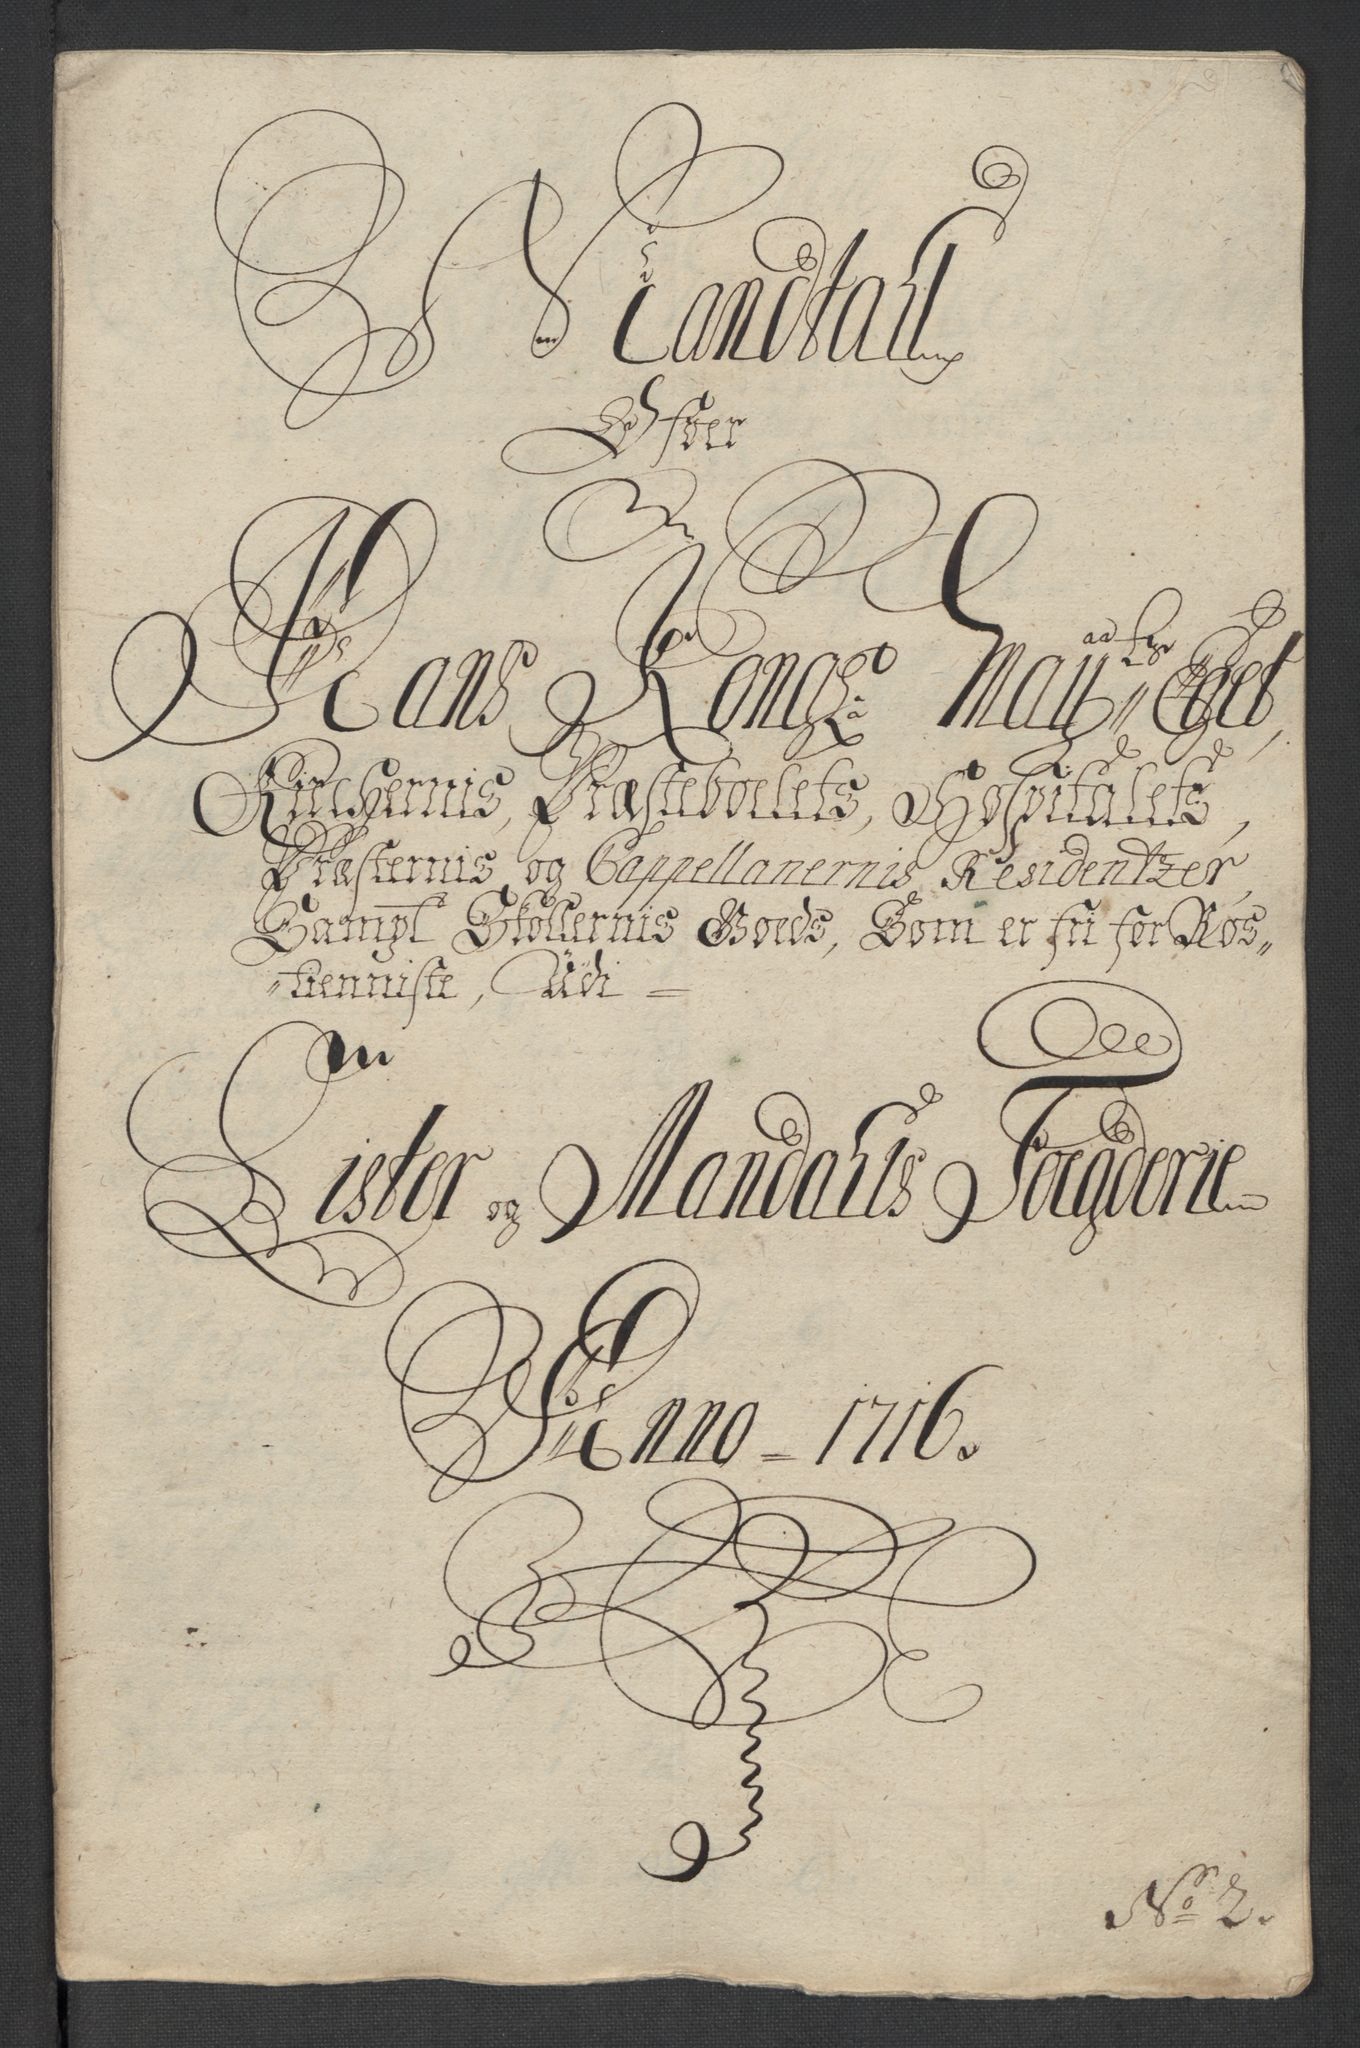 Mandtall
Ofver
Hans Kongl: Maÿtts Eget,
Kirchernis, Præsteboelets, Hospitalets,
Præsternis og Cappellanernis Residentzer,
Sampt Skollernis Goeds, Som er fri for Ros„
„tienniste, Udi =
Lister og Mandahls Foegderie
Anno = 1716.
No 2.